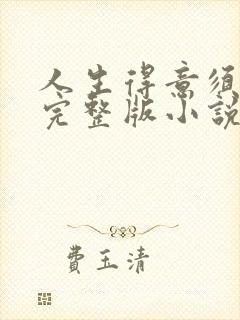 人生得意須
完整版小說
費玉清